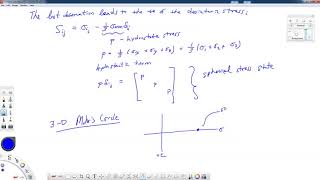 The last derivation leads to the use of the deviatoric stress:
Sij = σij -
p - hydrostatic stress
p = 1/3 (σx + σy + σz) = 1/3 (σ1 + σ2 + σ3)
hydrostatic term
p δij = [ p p p ] } spherical stress state
3-D Mohr's Circle
σ